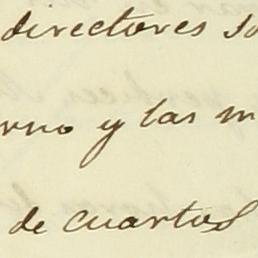 directores so
rno y las m
de cuartos